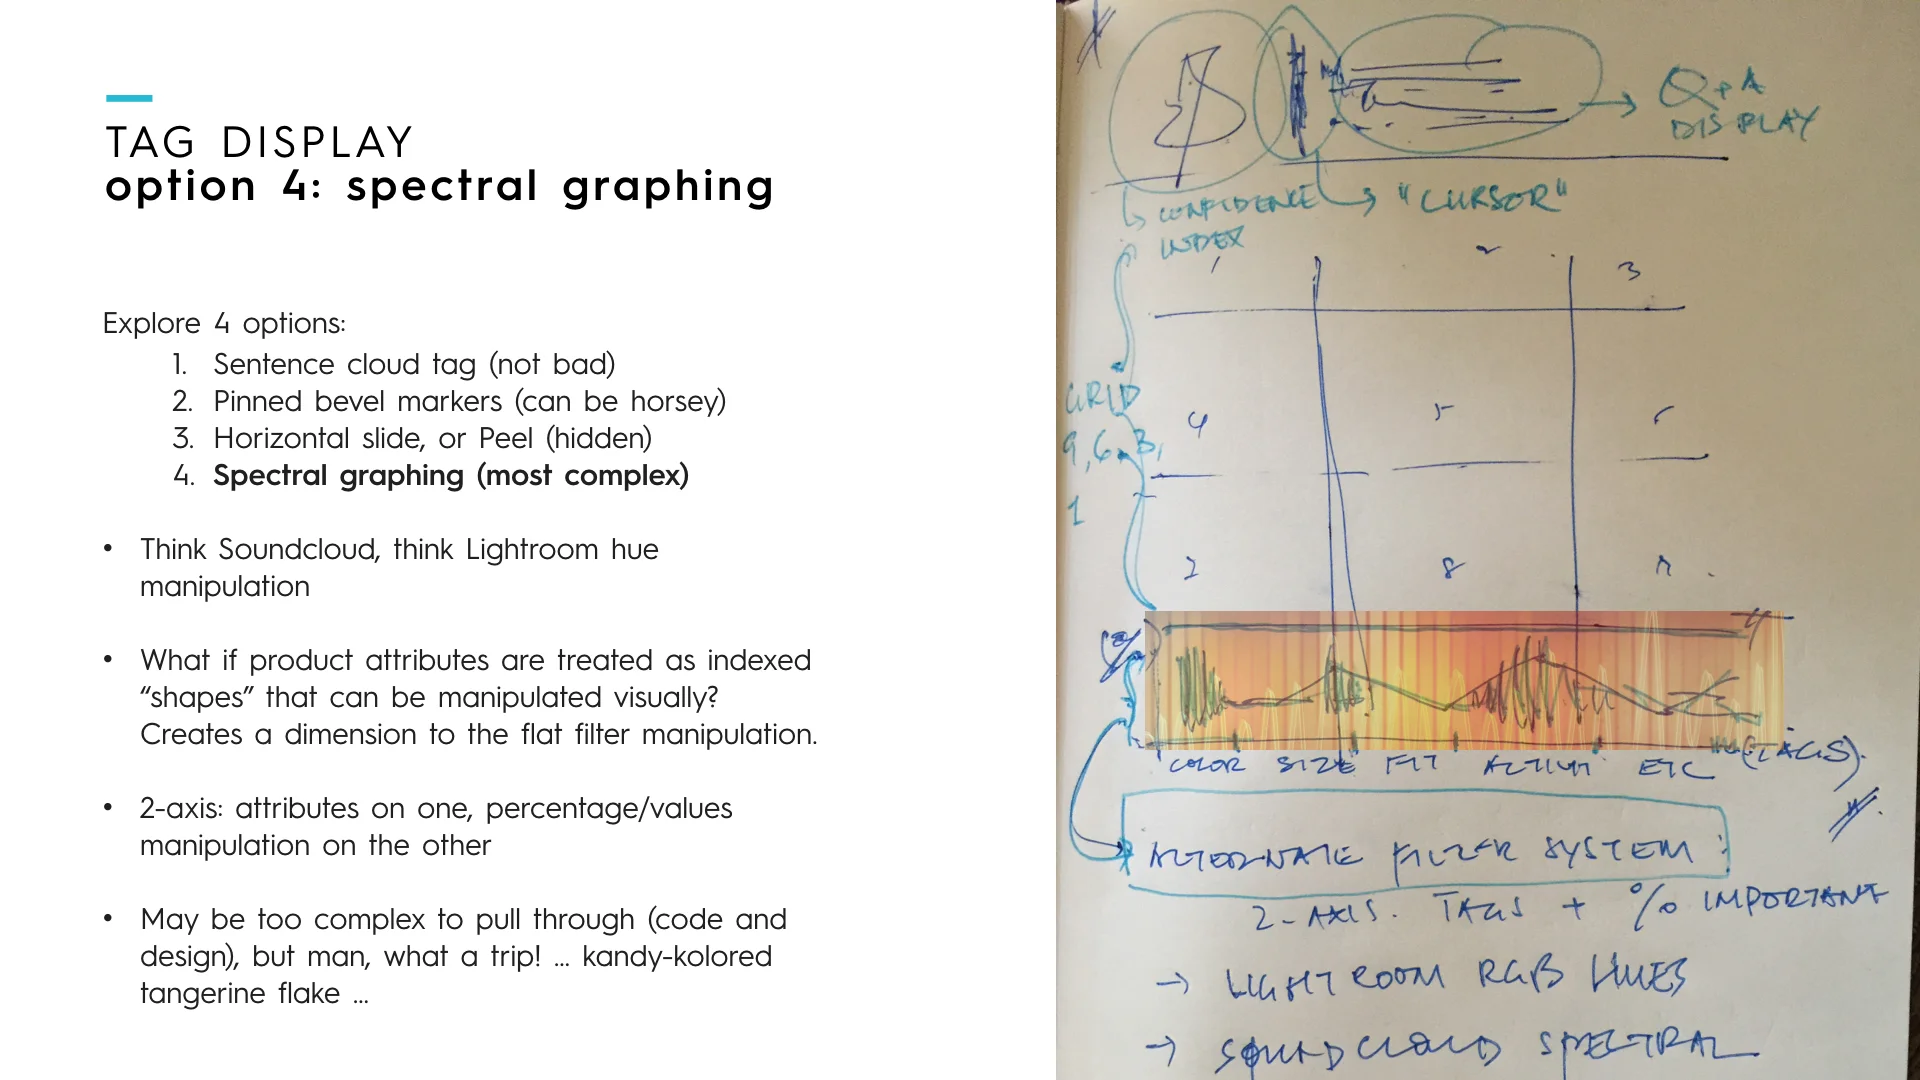 TAG DISPLAY
option 4: spectral graphing
Explore 4 options:
1. Sentence cloud tag (not bad)
2. Pinned bevel markers (can be horsey)
3. Horizontal slide, or Peel (hidden)
4. Spectral graphing (most complex)
• Think Soundcloud, think Lightroom hue
manipulation
• What if product attributes are treated as indexed
“shapes” that can be manipulated visually?
Creates a dimension to the flat filter manipulation.
• 2-axis: attributes on one, percentage/values
manipulation on the other
• May be too complex to pull through (code and
design), but man, what a trip! ... kandy-kolored
tangerine flake ...
Q + A
DISPLAY
CONFIDENCE
INDEX
"CURSOR"
1 2 3
GRID
9, 6, 3,
1
4 5 6
7 8 9
(%)
COLOR SIZE FIT ETC (TAGS)
ALTERNATE FILTER SYSTEM:
2-AXIS. TAGS + % IMPORTANT
→ LIGHTROOM RGB HUES
→ SOUNDCLOUD SPECTRAL